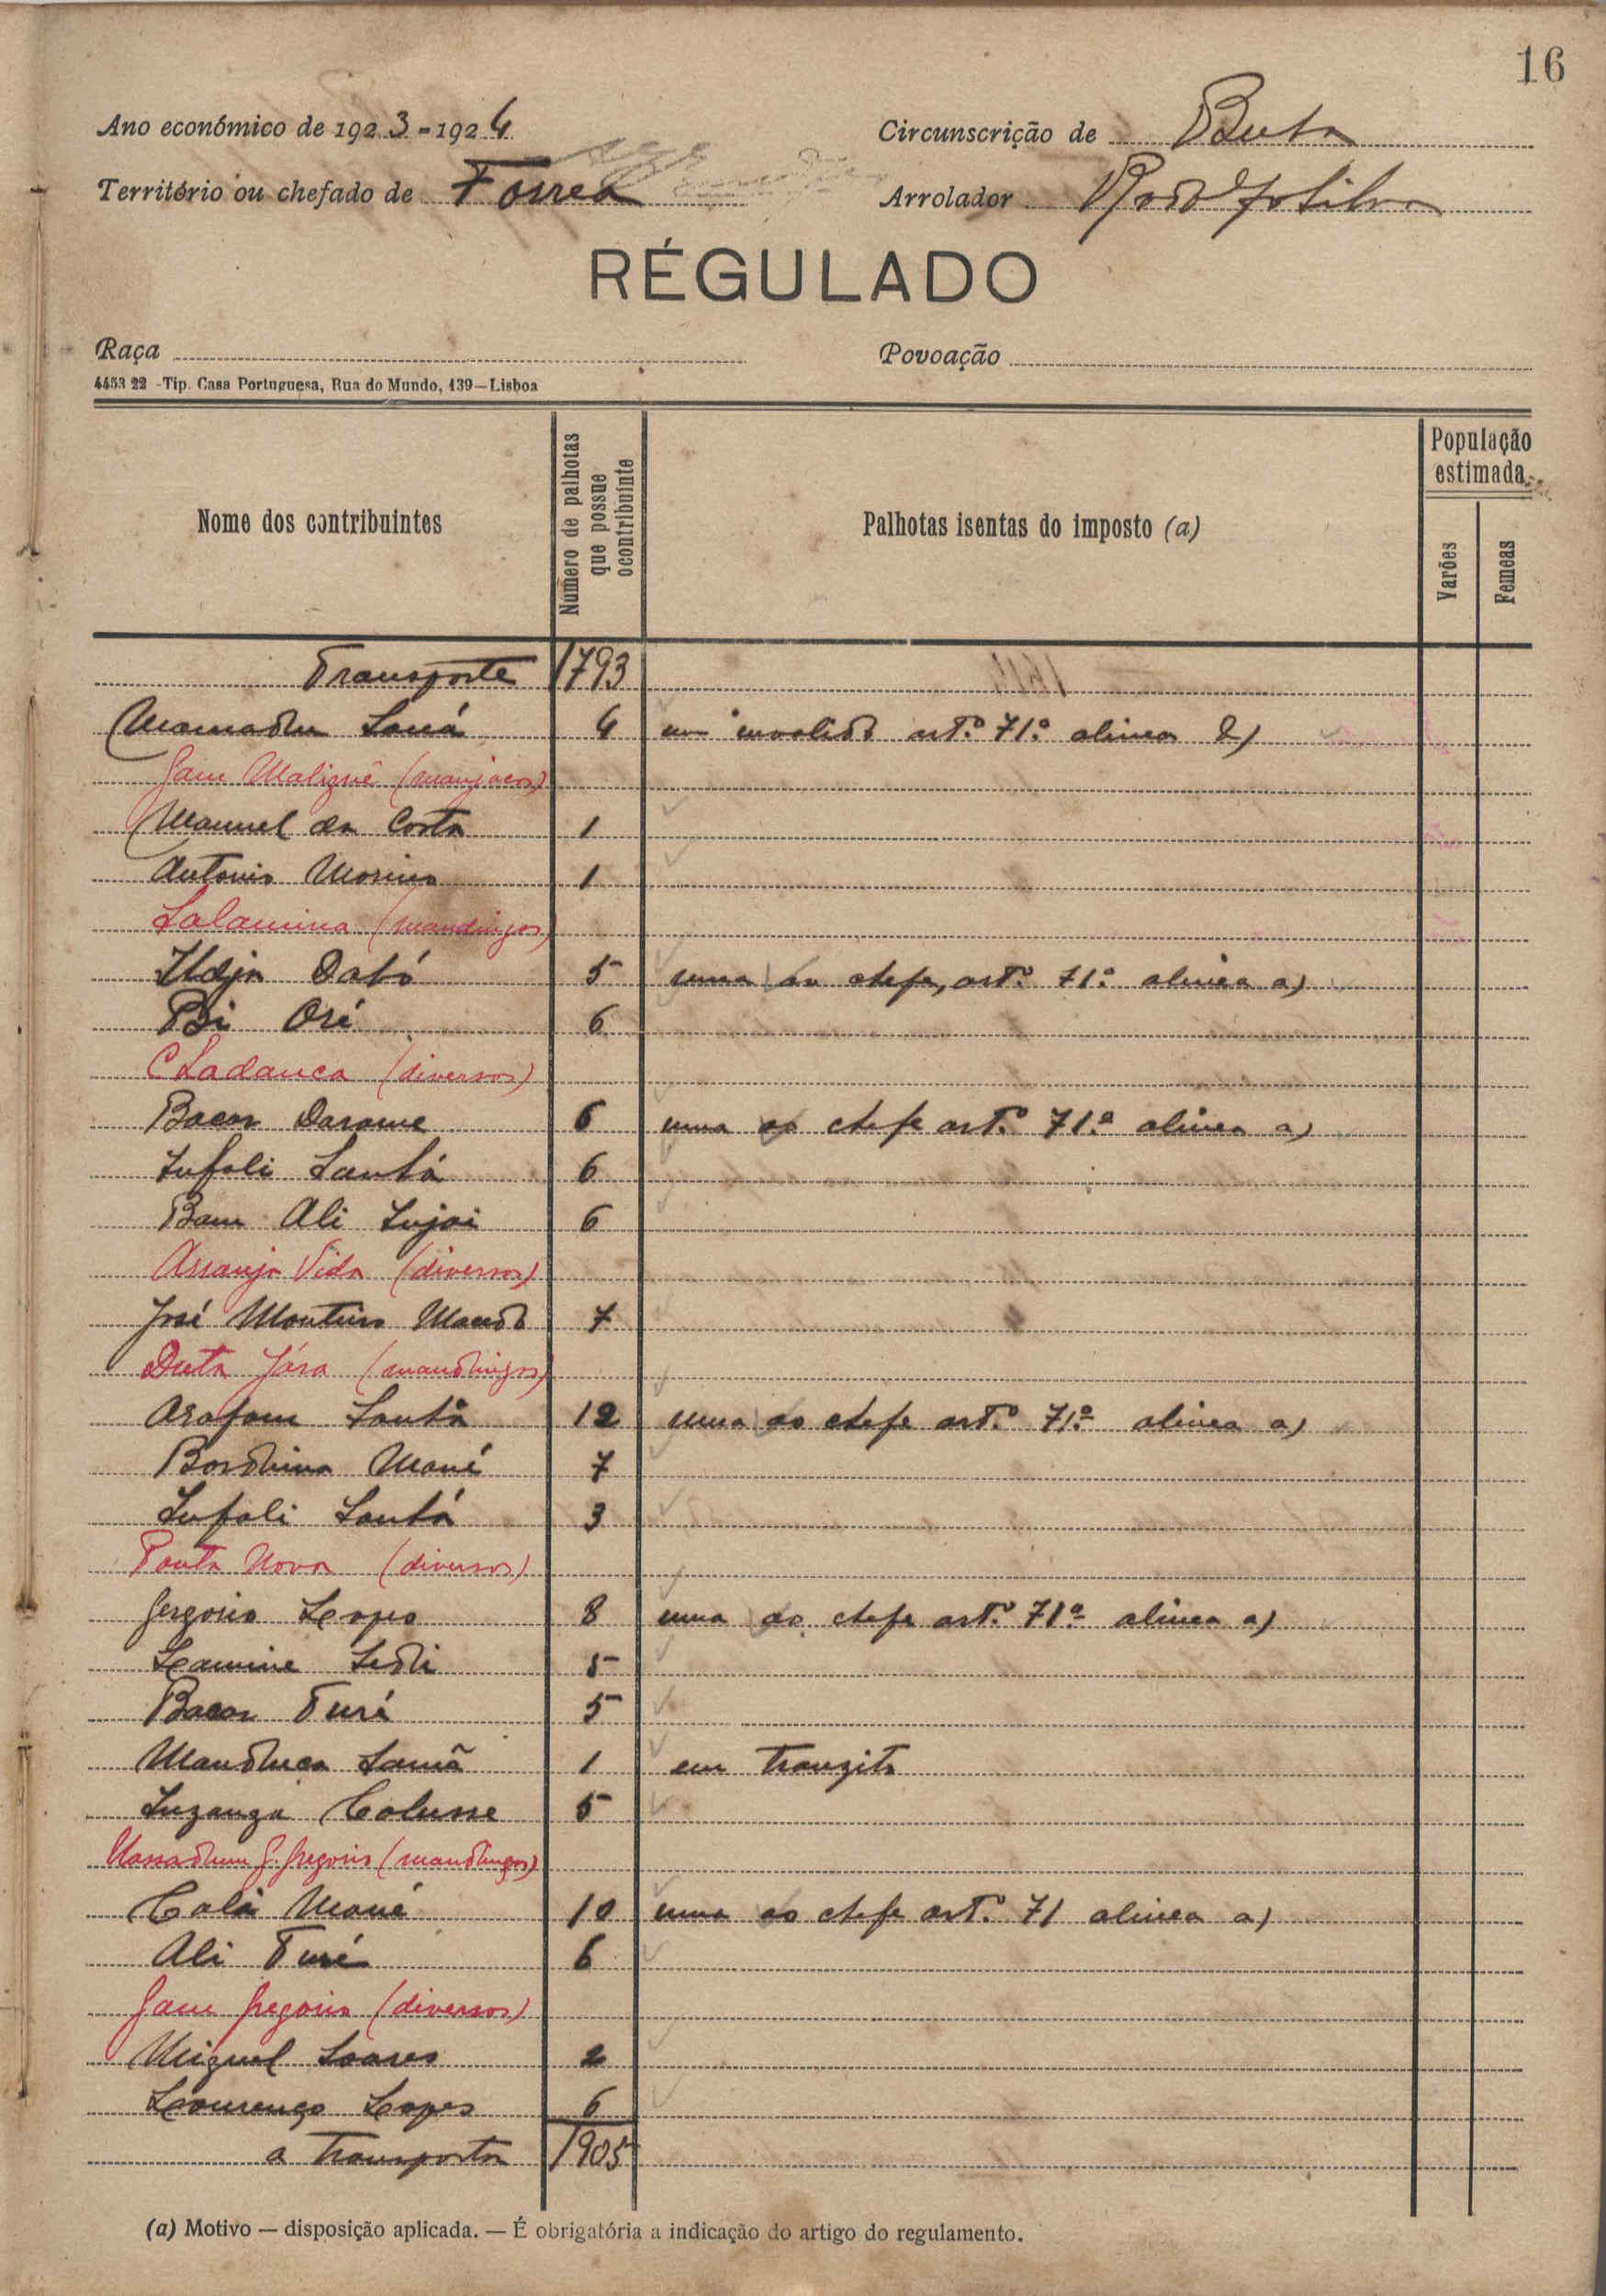 16
Ano económico de 1923-1924
Circunscrição de Buba
Território ou chefado de Forreá
Arrolador Rodolfo Silva
RÉGULADO
Raça
Povoação
4453 22 -Tip. Casa Portuguesa, Rua do Mundo, 139—Lisboa
Nome dos contribuintes
Número de palhotas que possue o contribuinte
Palhotas isentas do imposto (a)
População estimada
Varões
Femeas
Transporte 1793
Mamadu Saná 4 um invalido art.º 71.º alinea
(manjacos)
Manuel da Costa 1
Antonio 1
Salamina (mandingos)
Dabó 5 uma ao chefe, art.º 71.º alinea a)
Bi 6
Ladanca (diversos)
Bacar Darame 6 uma ao chefe art.º 71.º alinea a)
Sufali Santá 6
Bam Ali Sujai 6
Arranja Vida (diversos)
José Monteiro Macedo 7
Duta Jára (mandingos)
Arafam Santá 12 uma ao chefe art.º 71.º alinea a)
Bordrima Mané 7
Sufali Santá 3
Ponta Nova (diversos)
Gregorio Lopes 8 uma ao chefe art.º 71º alinea a)
Lamine Sedi 5
Bacar Turé 5
Manduca Samã 1 em tranzito
Colusse 5
(mandingos)
Calá Mané 10 uma ao chefe art.º 71 alinea a)
Ali Turé 6
Gam Gregorio (diversos)
Miguel Soares 2
Lourenço Lopes 6
a transportar 1905
(a) Motivo — disposição aplicada. — É obrigatória a indicação do artigo do regulamento.